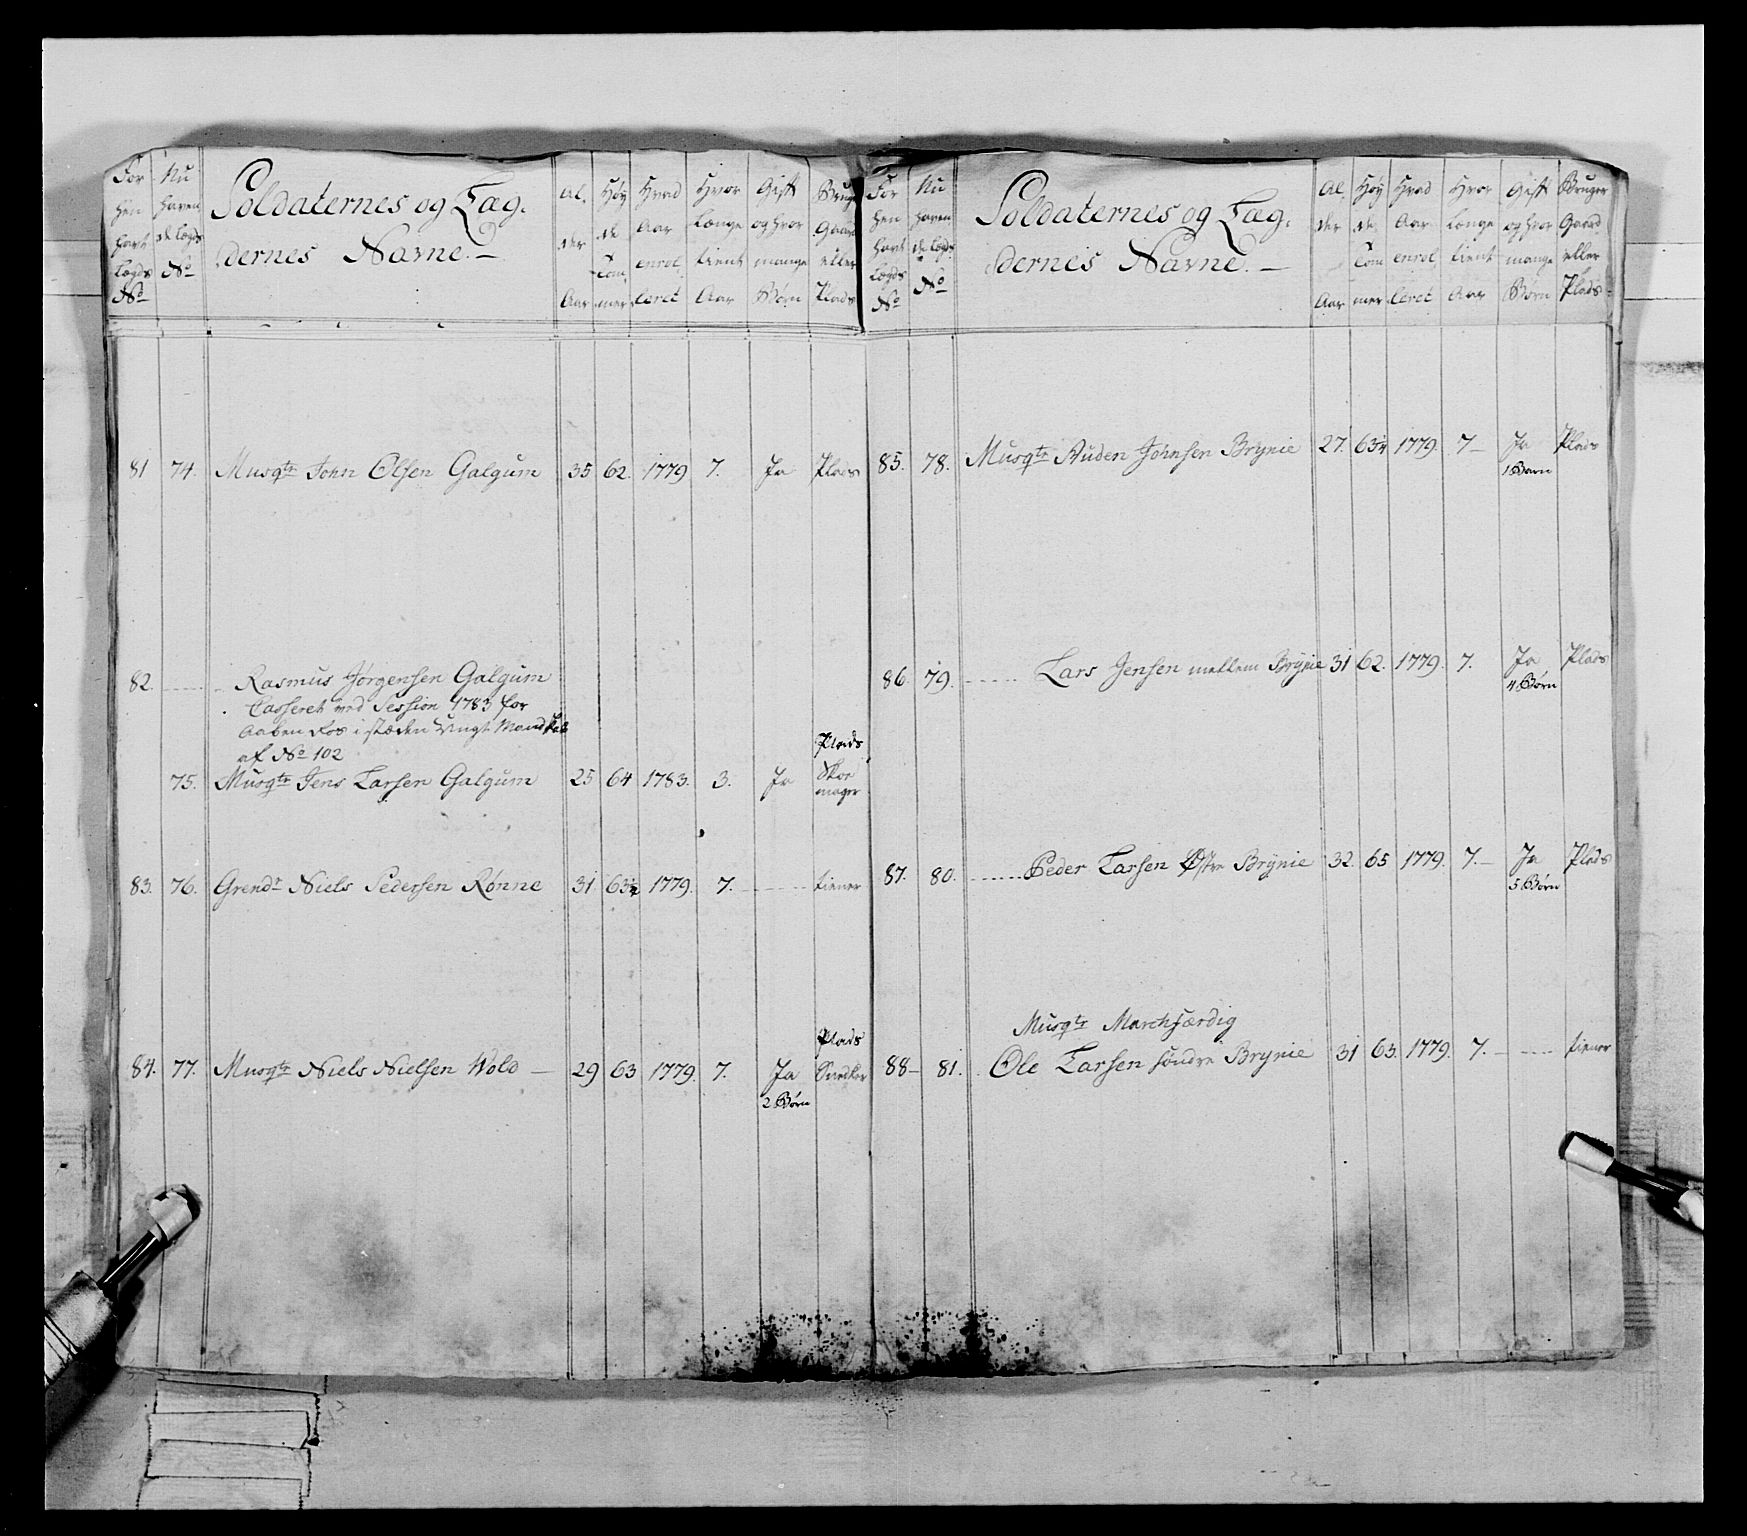 For hen havt Lægds No
Nu haven de Lægds No
Soldaternes og Læg-
dernes Navne.—
Al. der Aar
Høy de Tom mer
Hvad Aar enrol leret
Hvor Længe tient Aar
Gift og hvor mange Børn
Bruger Gaard eller Plads
81 74. Musqtr John Olsen Galgum 35 62. 1779 7. Ja Plads
82. Rasmus Jørgensen Galgum
Casseret ved Session 1783 for
Aaben i stæden Ungt Mandskab
af No 102
Plads
75. Musqtr Jens Larsen Galgum 25 64 1783. 3. Ja Skoe
mager
83. 76. Grendr Niels Pedersen Rønne 31 63½ 1779. 7. tiener
Plads
84. 77. Musqtr Niels Nielsen Wold — 29 63 1779. 7. Ja Snedker
2 Børn
For hen havt Lægds No
Nu haven de Lægds No
Soldaternes og Læg-
dernes Navne.—
Al. der Aar
Høy de Tom mer
Hvad Aar enrol leret
Hvor Længe tient Aar
Gift og hvor mange Børn
Bruger Gaard eller Plads
85. 78. Musqtr Auden Johnsen Brynie 27. 63¼ 1779. 7— Ja Plads
1 Barn
86 79. Lars Jensen mellem Brynie 31 62. 1779. 7. Ja Plads
4 Børn
87. 80. Peder Larsen Østre Brynie 32. 65 1779. 7.— Ja Plads
5 Børn
Musqtr Marchfærdig
88— 81. Ole Larsen søndre Brynie 31 63. 1779. 7. tiener